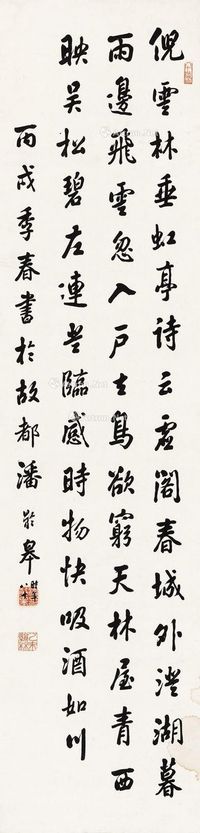 倪雲林垂虹亭詩云虛閣春城外澄湖暮
雨邊飛雲忽入戶去鳥欲窮天林屋青西
映吳松碧左連登臨感時物快吸酒如川
丙戌季春書於故都潘齡皋